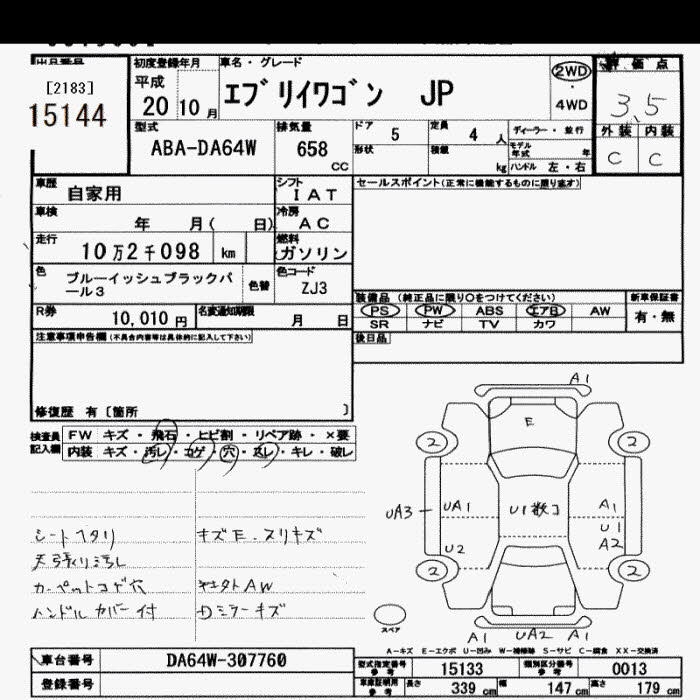 出品番号
[2183]
15144
初度登録年月
平成
20 10 月
車名・グレード
エブリイワゴン JP
2WD
・
4WD
評価点
3.5
型式
ABA-DA64W
排気量
658
CC
ドア
5
定員
4 人
ディーラー・並行
形状
積載
kg
モデル年式
年
ハンドル 左・右
外装 内装
C C
車歴
自家用
シフト
IAT
セールスポイント(正常に機能するものに限ります)
車検
年 月( 日)
冷房
AC
走行
10万2千098 km
燃料
ガソリン
色
ブルーイッシュブラックパール3
色替
色コード
ZJ3
装備品 (純正品に限り○をつけてください)
新車保証書
PS PW ABS エアB AW
有・無
SR ナビ TV カワ
R券
10,010 円
名変通知期限
月 日
後日品
注意事項申告欄(不具合内容等は具体的に記入して下さい)
修復歴 有〔箇所 〕
検査員記入欄
FW キズ・飛石・ヒビ割・リペア跡・×要
内装 キズ・汚レ・コゲ・穴・スレ・キレ・破レ
シートヘタリ
キズE.スリキズ
天張り汚レ
カーペットコゲ穴
ハンドルカバー付
Dミラーキズ
A1
E
2 2
UA3
UA1
U1数コ
A1
U1
A2
U2
2 2
スペア
A1 UA2 A1
A−キズ E−エクボ U−凹み W−補修跡 S−サビ C−腐食 XX−交換済
車台番号
DA64W-307760
登録番号
型式指定番号
参考
15133
類別区分番号
参考
0013
車庫証明用
参考
長さ
339 cm
幅
147 cm
高さ
179 cm